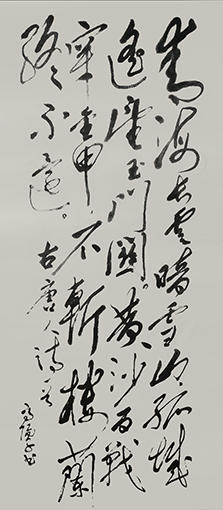 青海長雲暗雪山孤城
遙望玉門關。黃沙百戰
穿金甲不斬樓蘭
終不還。古唐人詩一首